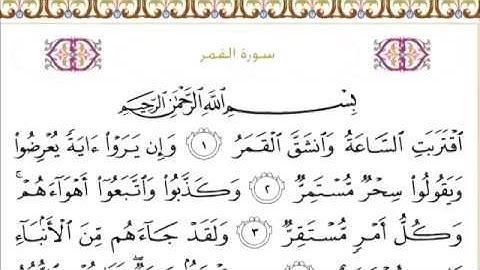 سورة القمر
بِسْمِ اللَّهِ الرَّحْمَٰنِ الرَّحِيمِ
ٱقْتَرَبَتِ ٱلسَّاعَةُ وَٱنشَقَّ ٱلْقَمَرُ ١ وَإِن يَرَوْا۟ ءَايَةً يُعْرِضُوا۟
وَيَقُولُوا۟ سِحْرٌ مُّسْتَمِرٌّ ٢ وَكَذَّبُوا۟ وَٱتَّبَعُوٓا۟ أَهْوَآءَهُمْ ۚ
وَكُلُّ أَمْرٍ مُّسْتَقِرٌّ ٣ وَلَقَدْ جَآءَهُم مِّنَ ٱلْأَنۢبَآءِ